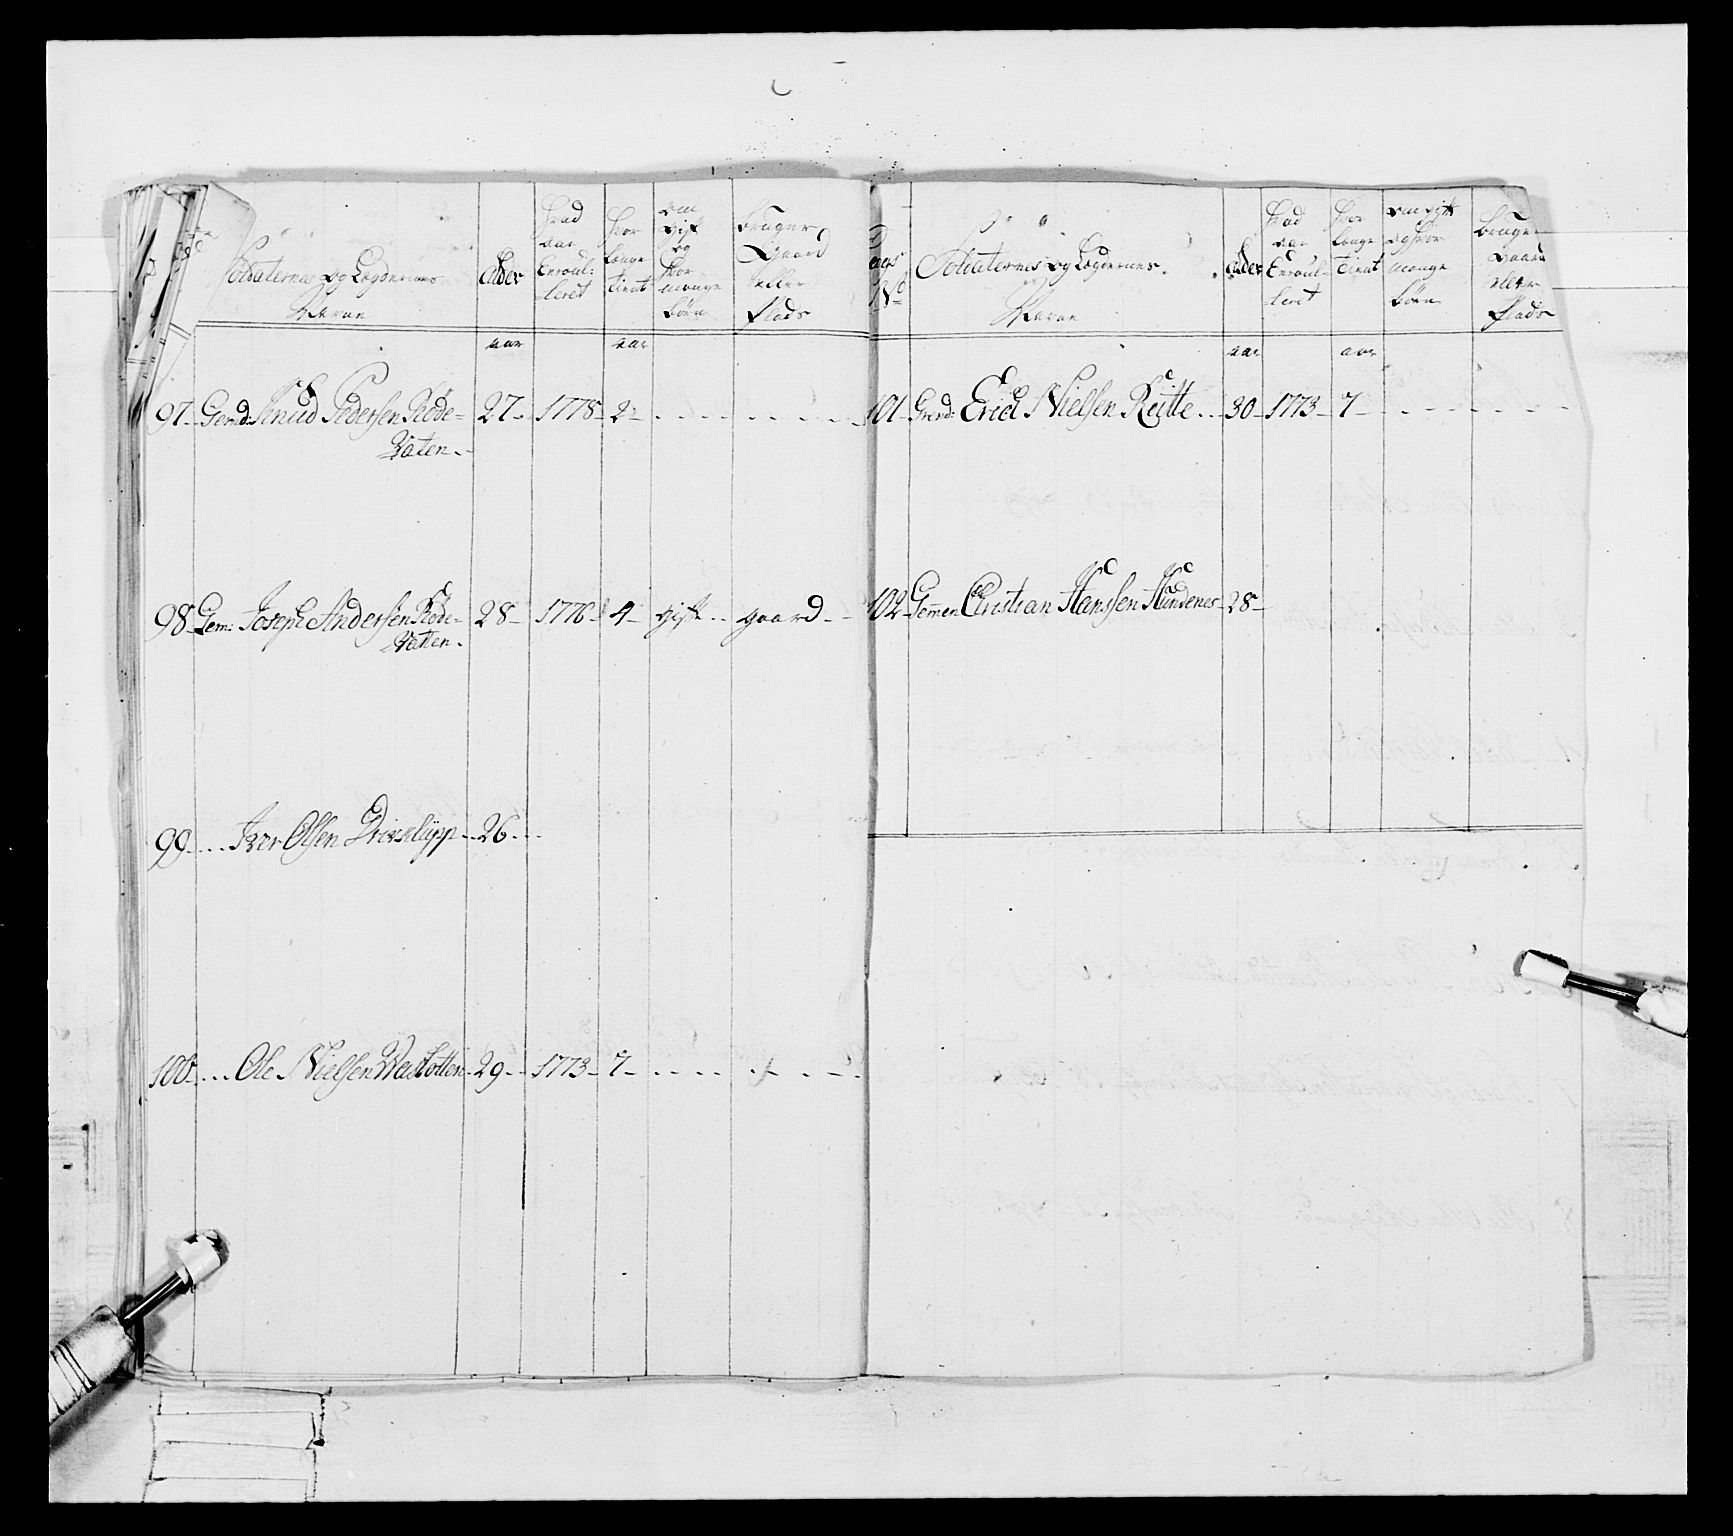 Soldaternes og Lægdernes Navne
Alder
Hvad aar Enroul:leret
Hvor længe tient
om gift og Hvor mange börn
bruger Gaard eller Plads
aar
aar
97 - Gemd: Knud Pedersen Röde-
Vaten. -
27 - 1778 - 2 -
98 - Gem: Joseph Andersen Röde-
Vatten -
28 - 1776 - 4 - gift - gaard -
99 - Iver Olsen Drivsklüpp - 26 -
100 - Ole Nielsen - 29 - 1773 - 7 -
No
Soldaternes og Lægdernes Navne
Alder
Hvad aar Enroul-leret
Hvor længe tient
om gift og Hvor mange börn
bruger Gaard eller Plads
aar
aar
101 - Gemd: Erich Nielsen Reitte - 30 - 1773 - 7 -
102 - Gemen Christian Hanssen Hundenes - 28 -